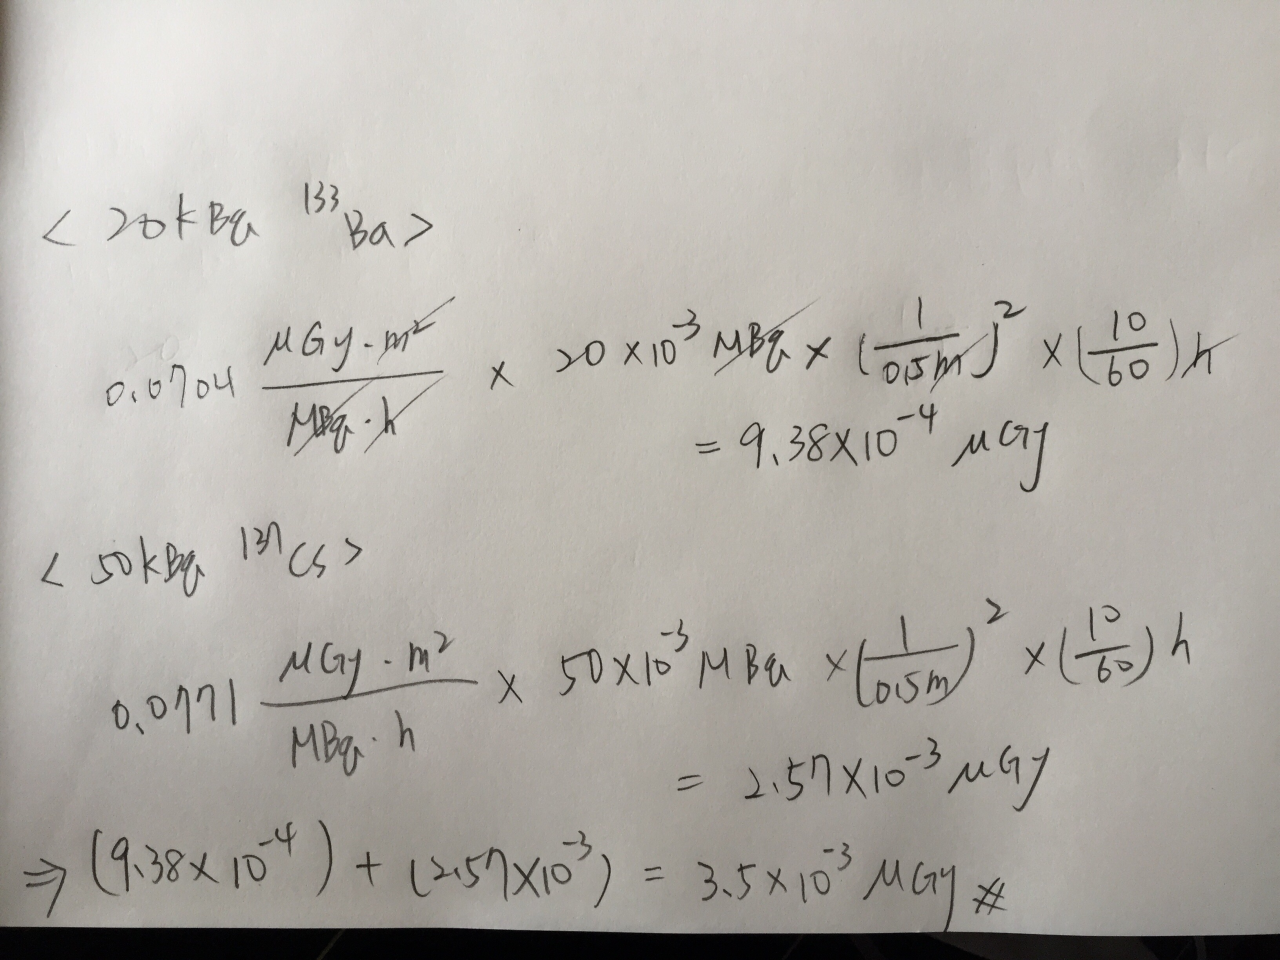 < 20kBq ¹³³Ba >
0.0704 μGy·m²/MBq·h × 20×10⁻³ MBq × (1/0.5m)² × (10/60) h
= 9.38×10⁻⁴ μGy
< 50kBq ¹³⁷Cs >
0.0771 μGy·m²/MBq·h × 50×10⁻³ MBq × (1/0.5m)² × (10/60) h
= 2.57×10⁻³ μGy
⇒ (9.38×10⁻⁴) + (2.57×10⁻³) = 3.5×10⁻³ μGy #